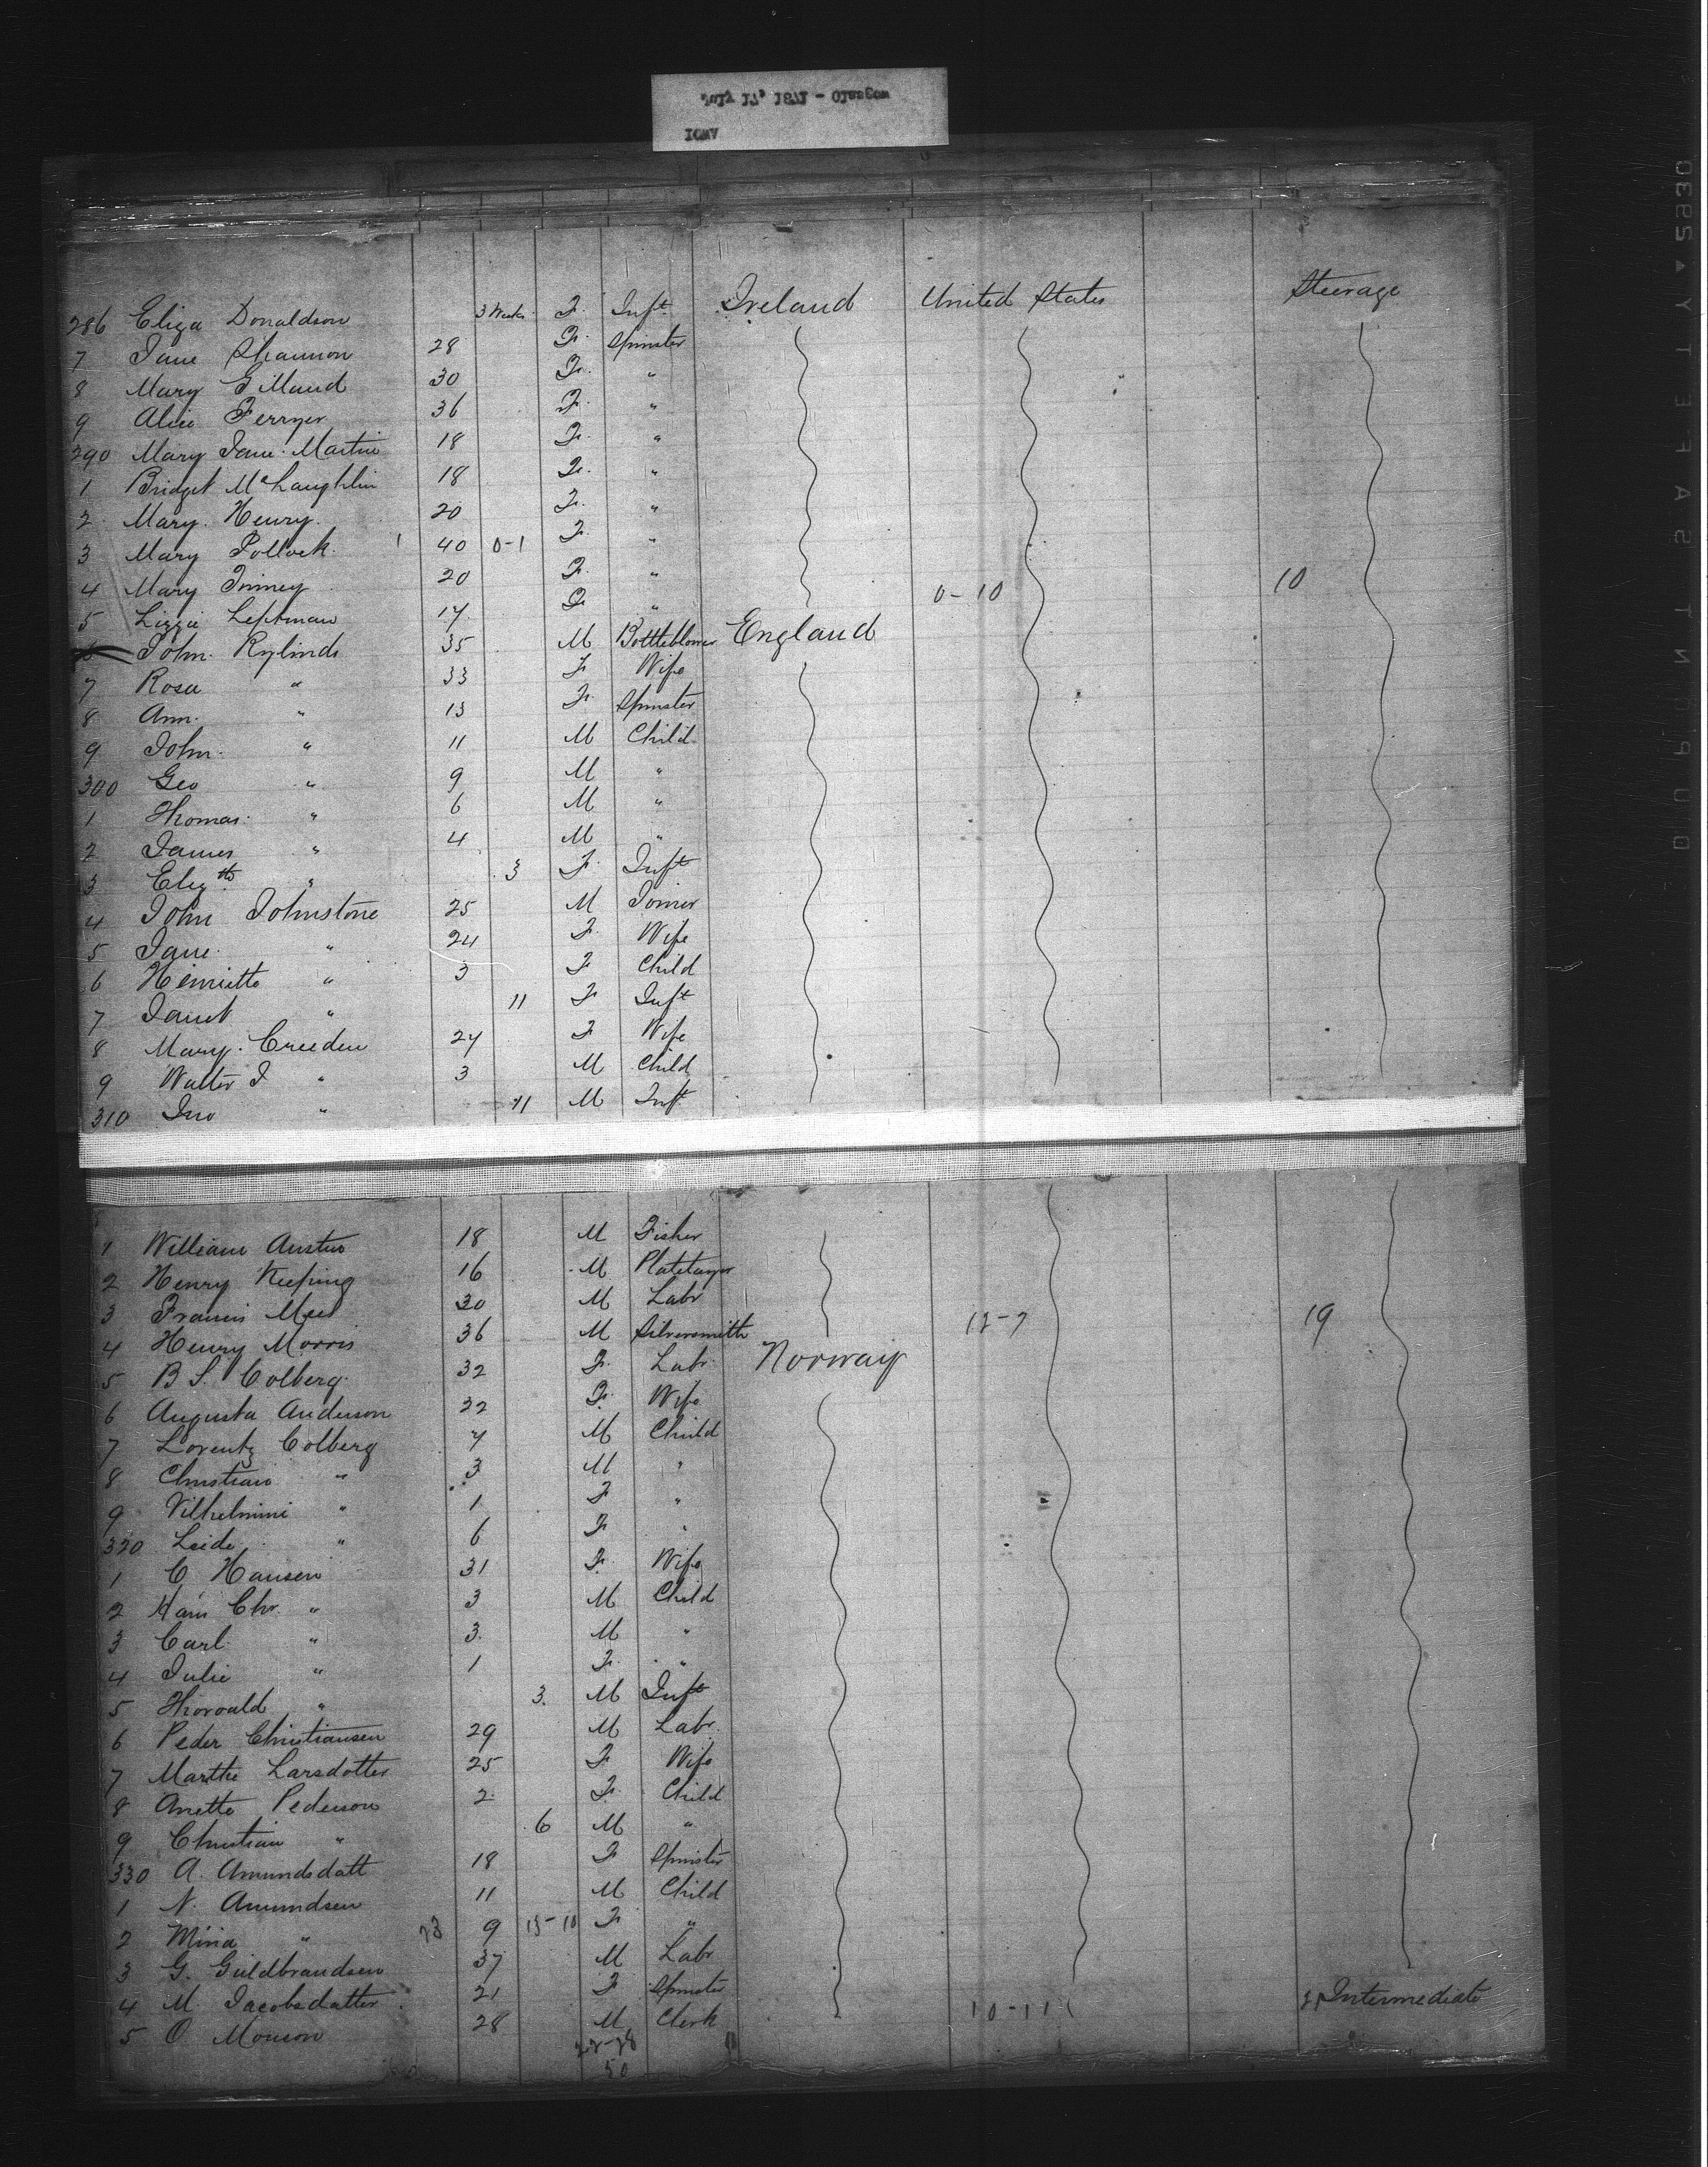 286 Eliza Donaldson 3 Weeks F. Inft Ireland United States Steerage
7 Jane Shannon 28 F. Spinster
8 Mary Gilland 30 F. "
9 Alice Ferryer 36 F. "
290 Mary Jane Martin 18 F. "
1 Bridget McLaughlin 18 F. "
2 Mary Henry 20 F. "
3 Mary Pollock 1 40 0-1 F. "
4 Mary Finney 20 F. " 0-10 10
5 Lizzie 17 F. "
6 John Rylinds 35 M Bottleblower England
7 Rosa " 33 F Wife
8 Ann " 13 F. Spinster
9 John " 11 M Child
300 Geo " 9 M "
1 Thomas " 6 M "
2 James " 4 M "
3 Elizth " 3 F. Inft
4 John Johnstone 25 M Joiner
5 Jane " 24 F. Wife
6 Henrietta " 3 F Child
7 Janet " 11 F Inft
8 Mary Creeden 24 F Wife
9 Walter J " 3 M Child
310 Jno " 11 M Inft
1 William Austin 18 M Fisher
2 Henry Keeping 16 M Platelayer
3 Francis 30 M Labr
4 Henry Morris 36 M Silversmith 12-7 19
5 B S Colberg 32 F. Labr Norway
6 Augusta Anderson 32 F. Wife
7 Lorentz Colberg 7 M Child
8 Christian " 3 M "
9 Vilhelmine " 1 F "
320 " 6 F "
1 C Hansen 31 F. Wife
2 Chr. " 3 M Child
3 Carl " 3. M "
4 Julie " 1 F. "
5 Thorvald " 3. M Inft
6 Peder Christiansen 29 M Labr.
7 Marthe Larsdotter 25 F Wife
8 Anette Pederson 2 F. Child
9 Christian " 6 M "
330 A. Amundsdatt 18 F Spinster
1 N. Amundsen 11 M Child
2 Mina " 23 9 13-10 F "
3 G. Guldbrandsen 37 M Labr
4 M. Jacobsdatter 21 F Spinster 10-11 21
5 O Monson 28 M Clerk Intermediate
22-28
50